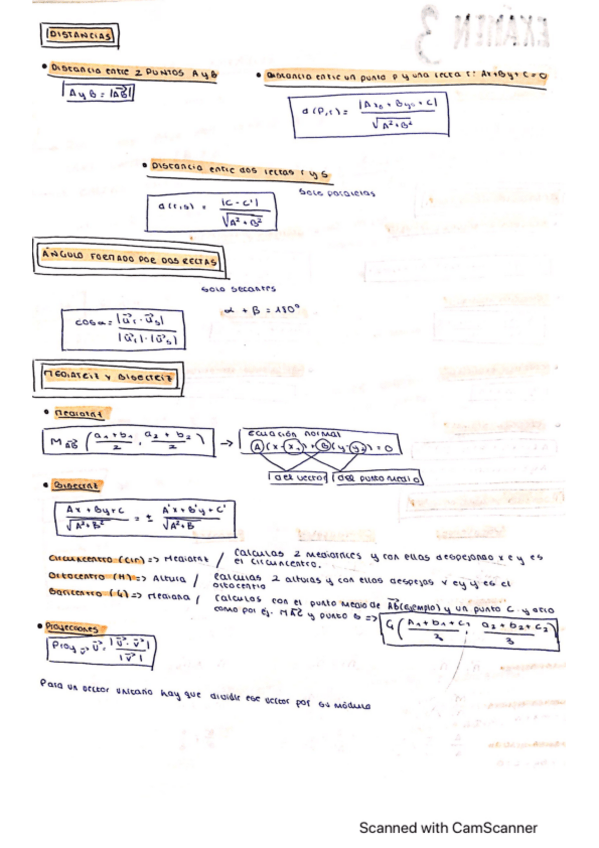 EXAMEN 3
DISTANCIAS
• DISTANCIA ENTRE 2 PUNTOS A y B
A y B = |AB→|
• DISTANCIA ENTRE UN PUNTO P y UNA RECTA r: Ax+By+C=0
d(P,r) = |Ax₀ + By₀ + C| / √A²+B²
• DISTANCIA ENTRE DOS RECTAS r y s
Solo paralelas
d(r,s) = |C - C'| / √A² + B²
ÁNGULO FORMADO POR DOS RECTAS
Solo secantes
cos α = |u→r · u→s| / |u→r| · |u→s|
α + β = 180°
MEDIATRIZ Y BISECTRIZ
• MEDIATRIZ
M AB ( a₁+b₁ / 2 , a₂ + b₂ / 2 ) → Ecuación normal
A(x-x₁) + B(y-y₂) = 0
del vector del punto medio
• BISECTRIZ
Ax + By + C / √A²+B² = ± A'x + B'y + C' / √A²+B²
Circuncentro (Cir) => Mediatriz / Calculas 2 mediatrices y con ellas despejando x e y es
el circuncentro.
Ortocentro (H) => Altura / Calculas 2 alturas y con ellos despejas x e y y es el
ortocentro
Baricentro (G) => Mediana / Calculas con el punto medio de AB (ejemplo) y un punto C y otro
como por ej. MAC y punto B => G ( A₁+b₁+c₁ / 3 , a₂+b₂+c₂ / 3 )
• Proyecciones
Proy v→ = |u→ · v→| / |v→|
Para un vector unitario hay que dividir ese vector por su módulo
Scanned with CamScanner